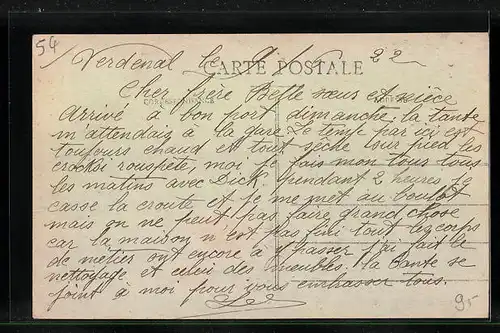 54
Verdenal le 9/6 22
CARTE POSTALE
Cher frère Belle sœur et nièce
CORRESPONDANCE
arrivé a bon port dimanche. la tante
m'attendais à la gare Le temps par ici est
toujours chaud et tout seche sur pied les
rouspète, moi je fais mon tour tous
les matins avec Dick. pendant 2 heures je
casse la croute et je me met au boulot
mais on ne peut pas faire grand chose
car la maison n'est pas fini tout les corps
de métier ont encore a y passer j'ai fait le
nettoyage et celui des meubles. la Tante se
joint à moi pour vous embrasser tous.
95